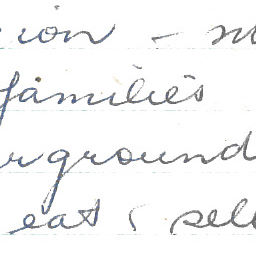 ion - m
families
rground
eat & sell